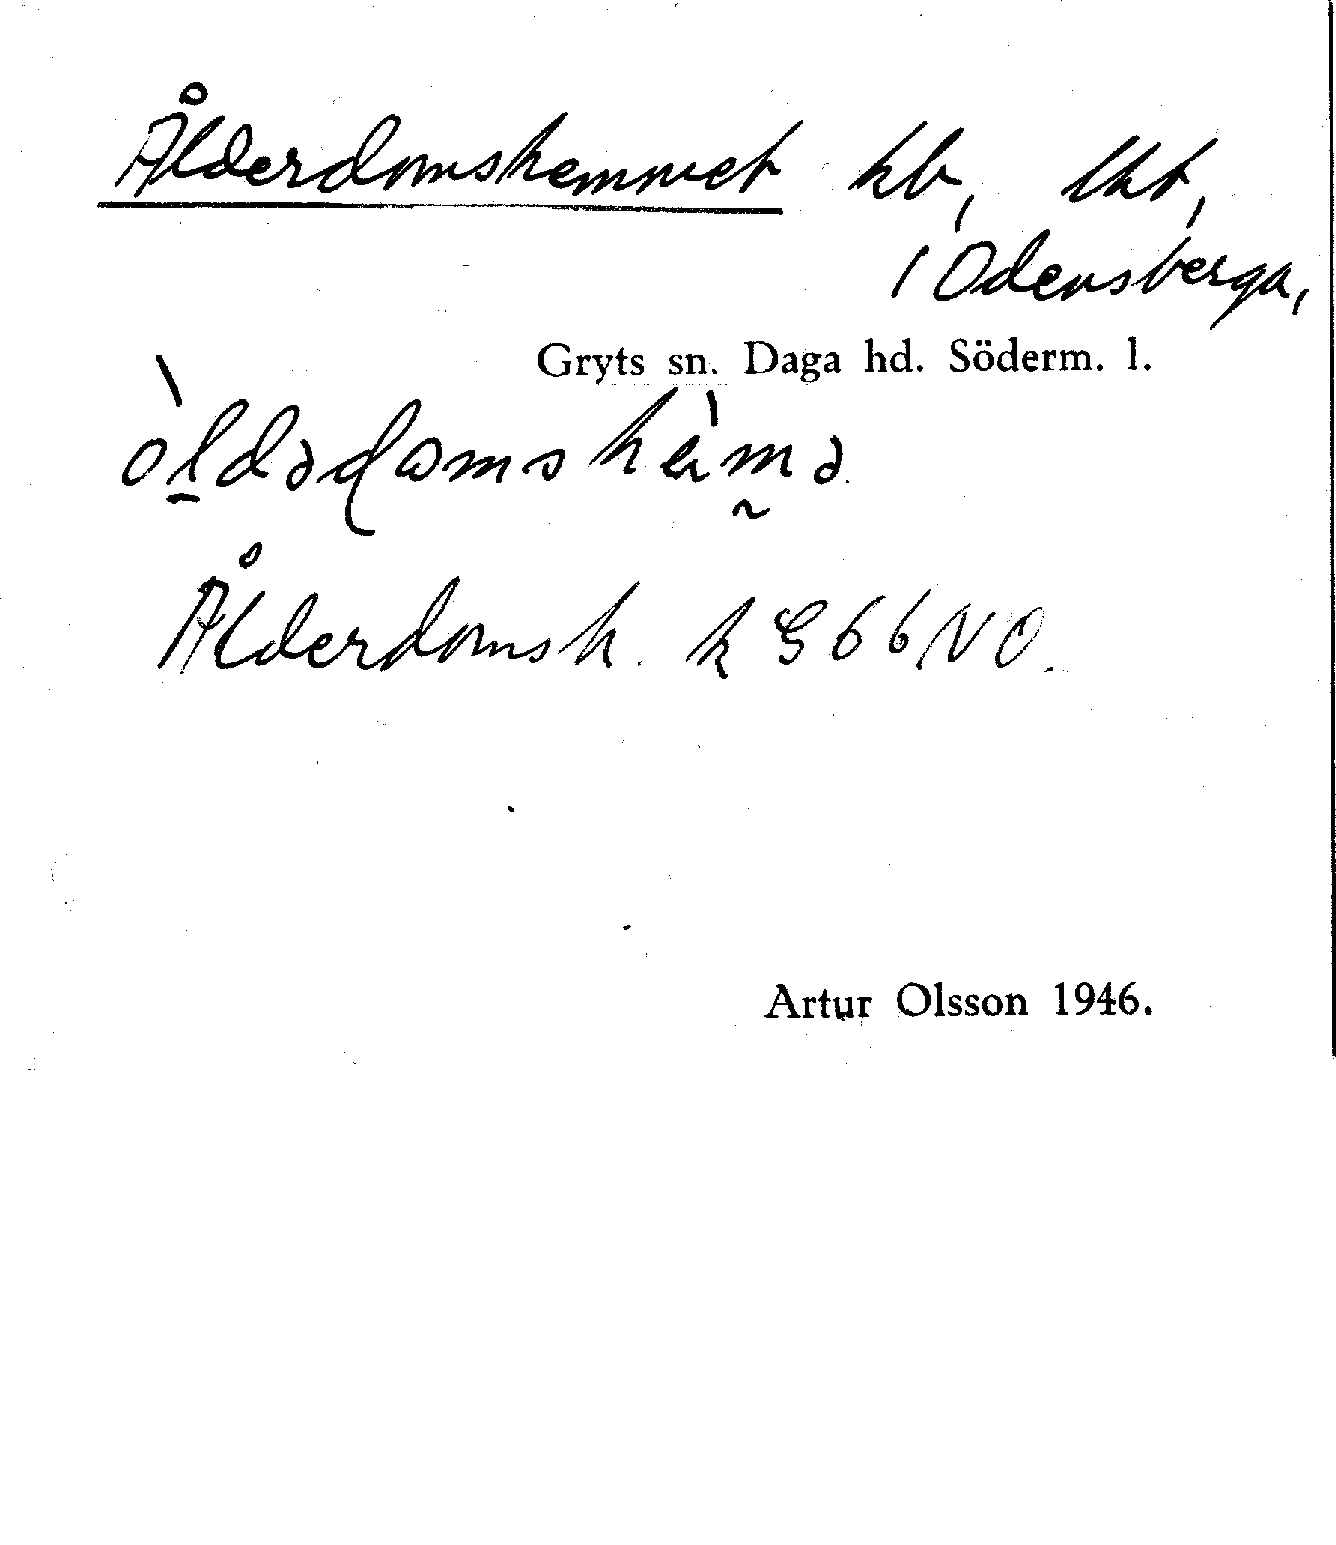 Ålderdomshemmet hb, lht,
i Odensberga,
Gryts sn. Daga hd. Söderm. l.
Ålderdomsh. k G66NO.
Artur Olsson 1946.